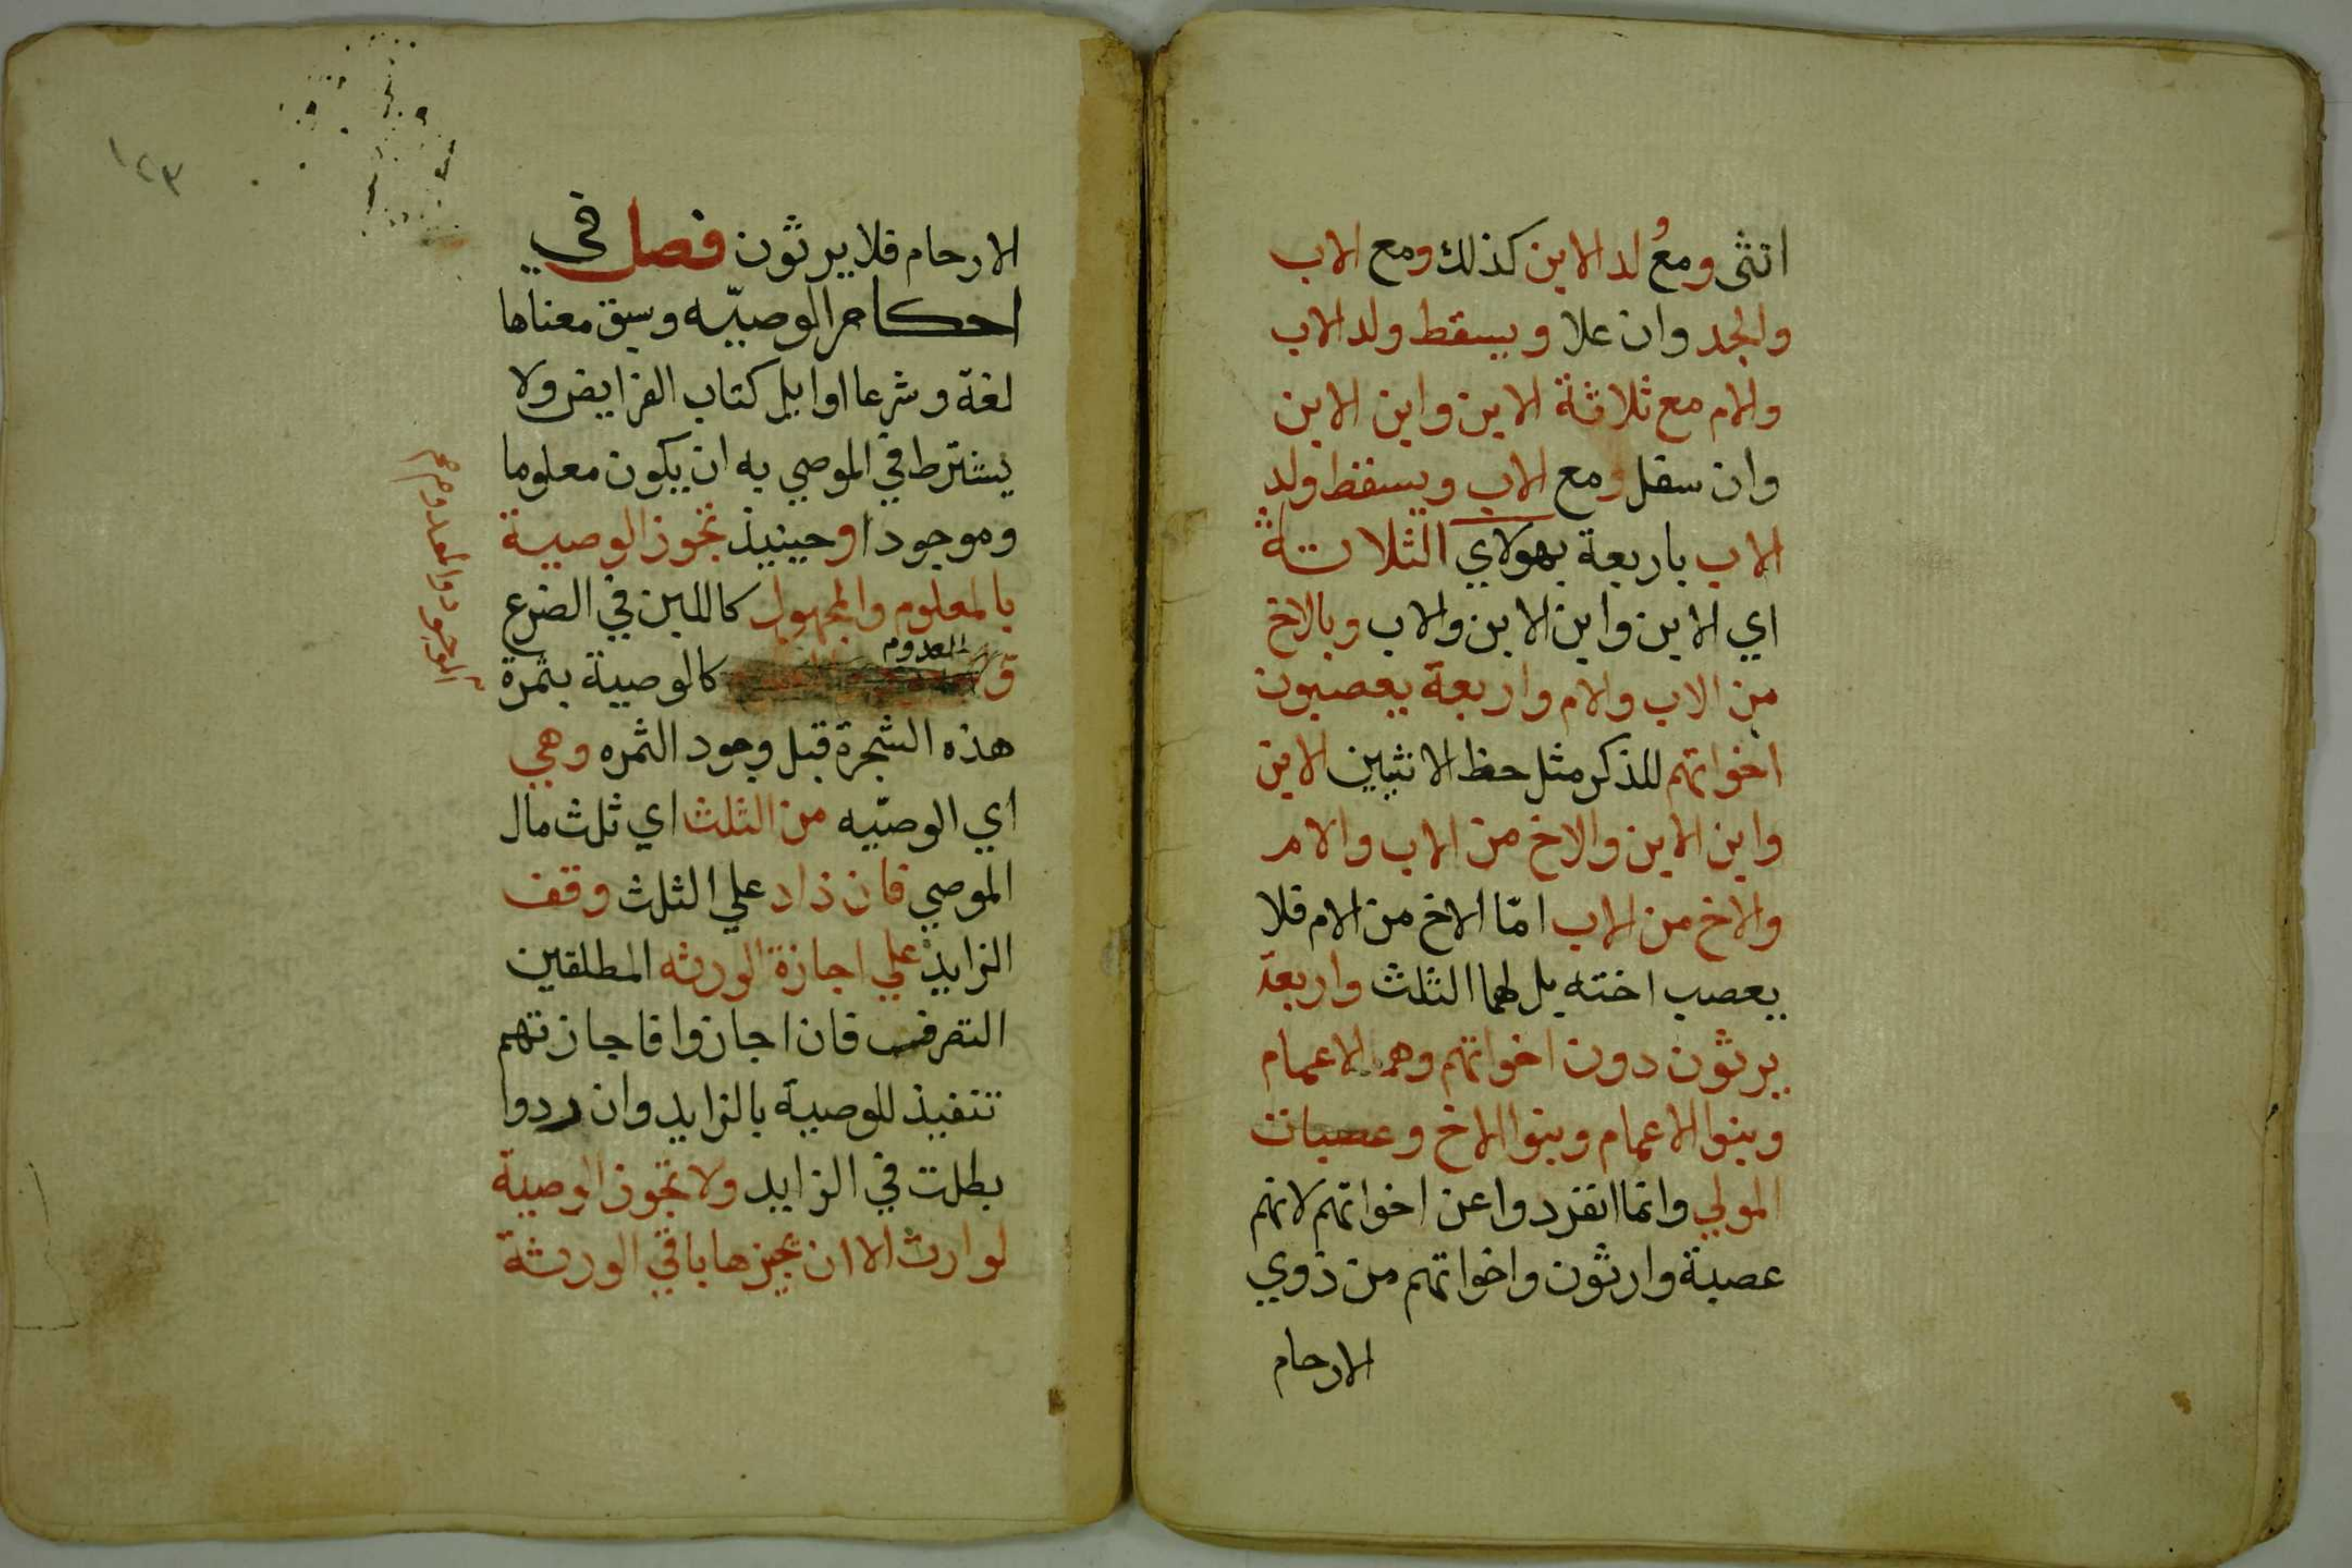 انثى ومع ولد الابن كذلك ومع الاب
والجد وان علا ويسقط ولد الاب
والام مع ثلاثة الابن وابن الابن
وان سفل ومع الاب ويسقط ولد
الاب باربعة بهولاي الثلاثة
اي الابن وابن الابن والاب وبالاخ
من الاب والام واربعة يعصبون
اخواتهم للذكر مثل حظ الانثيين الابن
وابن الابن والاخ من الاب والام
والاخ من الاب امّا الاخ من الام فلا
يعصب اخته بل لهما الثلث واربعة
يرثون دون اخواتهم وهم الاعمام
وبنوا الاعمام وبنوا الاخ وعصبات
المولي وانما انفردوا عن اخواتهم لانهم
عصبة وارثون واخواتهم من ذوي
الارحام
١٢٣
الارحام فلا يرثون فصل في
احكام الوصيّه وسبق معناها
لغة وشرعا اوايل كتاب الفرايض ولا
يشترط في الموصي به ان يكون معلوما
وموجودا وحينيذ تجوز الوصية
بالمعلوم والمجهول كاللبن في الضرع
المعدوم
كالوصية بثمرة
بالموجود والمعدوم
هذه الشجرة قبل وجود الثمره وهي
اي الوصيّه من الثلث اي ثلث مال
الموصي فان ذاد علي الثلث وقف
الزايد علي اجازة الورثه المطلقين
التصرف فان اجازوا فاجازتهم
تنفيذ للوصية بالزايد وان ردوا
بطلت في الزايد ولا تجوز الوصية
لوارث الا ان يجيزها باقي الورثة